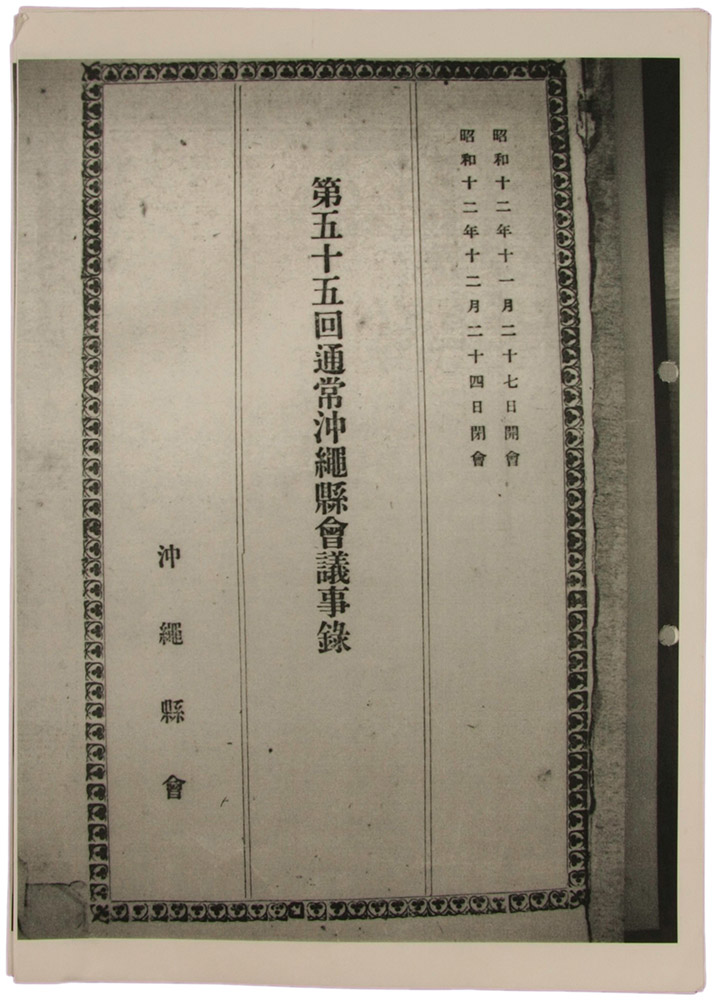 昭和十二年十一月二十七日開會
昭和十二年十二月二十四日閉會
第五十五回通常沖繩縣會議事錄
沖繩縣會